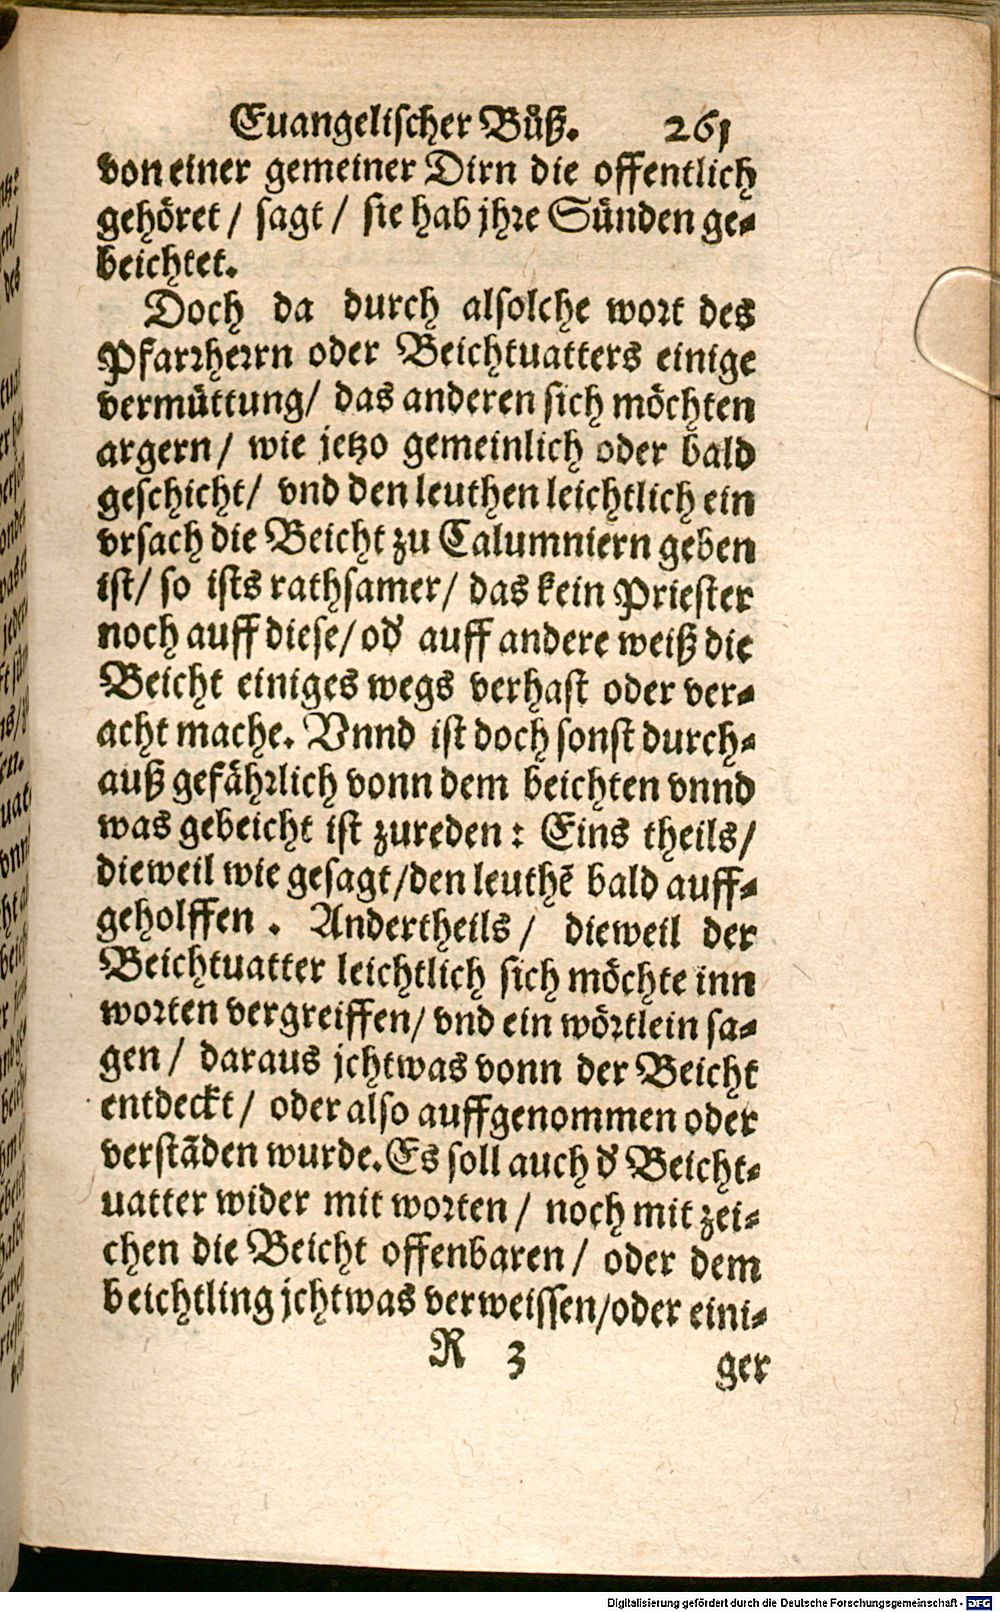 Euangelischer Bůß. 261
von einer gemeiner Dirn die offentlich
gehöret / sagt / sie hab jhre Sünden ge-
beichtet.
Doch da durch alsolche wort des
Pfarrherrn oder Beichtuatters einige
vermüttung/ das anderen sich möchten
argern / wie jetzo gemeinlich oder bald
geschicht/ vnd den leuthen leichtlich ein
vrsach die Beicht zu Calumniern geben
ist/ so ists rathsamer/ das kein Priester
noch auff diese/ od' auff andere weiß die
Beicht einiges wegs verhast oder ver-
acht mache. Vnnd ist doch sonst durch-
auß gefährlich vonn dem beichten vnnd
was gebeicht ist zureden: Eins theils/
dieweil wie gesagt/den leuthē bald auff-
geholffen. Andertheils / dieweil der
Beichtuatter leichtlich sich möchte inn
worten vergreiffen/ vnd ein wörtlein sa-
gen / daraus jchtwas vonn der Beicht
entdeckt / oder also auffgenommen oder
verstāden wurde. Es soll auch d' Beicht-
uatter wider mit worten / noch mit zei-
chen die Beicht offenbaren / oder dem
beichtling jchtwas verweissen/oder eini-
R 3 ger
Digitalisierung gefördert durch die Deutsche Forschungsgemeinschaft - DFG